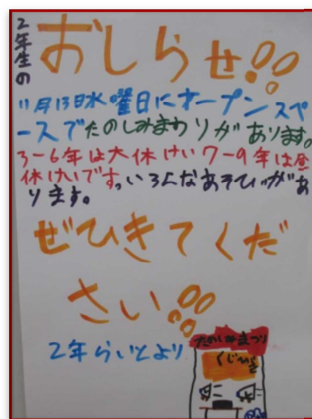 2年生の
おしらせ!!
11月13日水曜日にオープンスペ
ースでたのしみまつりがあります。
3-6年は大休けい7-9年は昼
休けいです。いろんなあそびがあ
ります。
ぜひきてくだ
さい!!
2年らいとより
たのしみまつり
くじびき